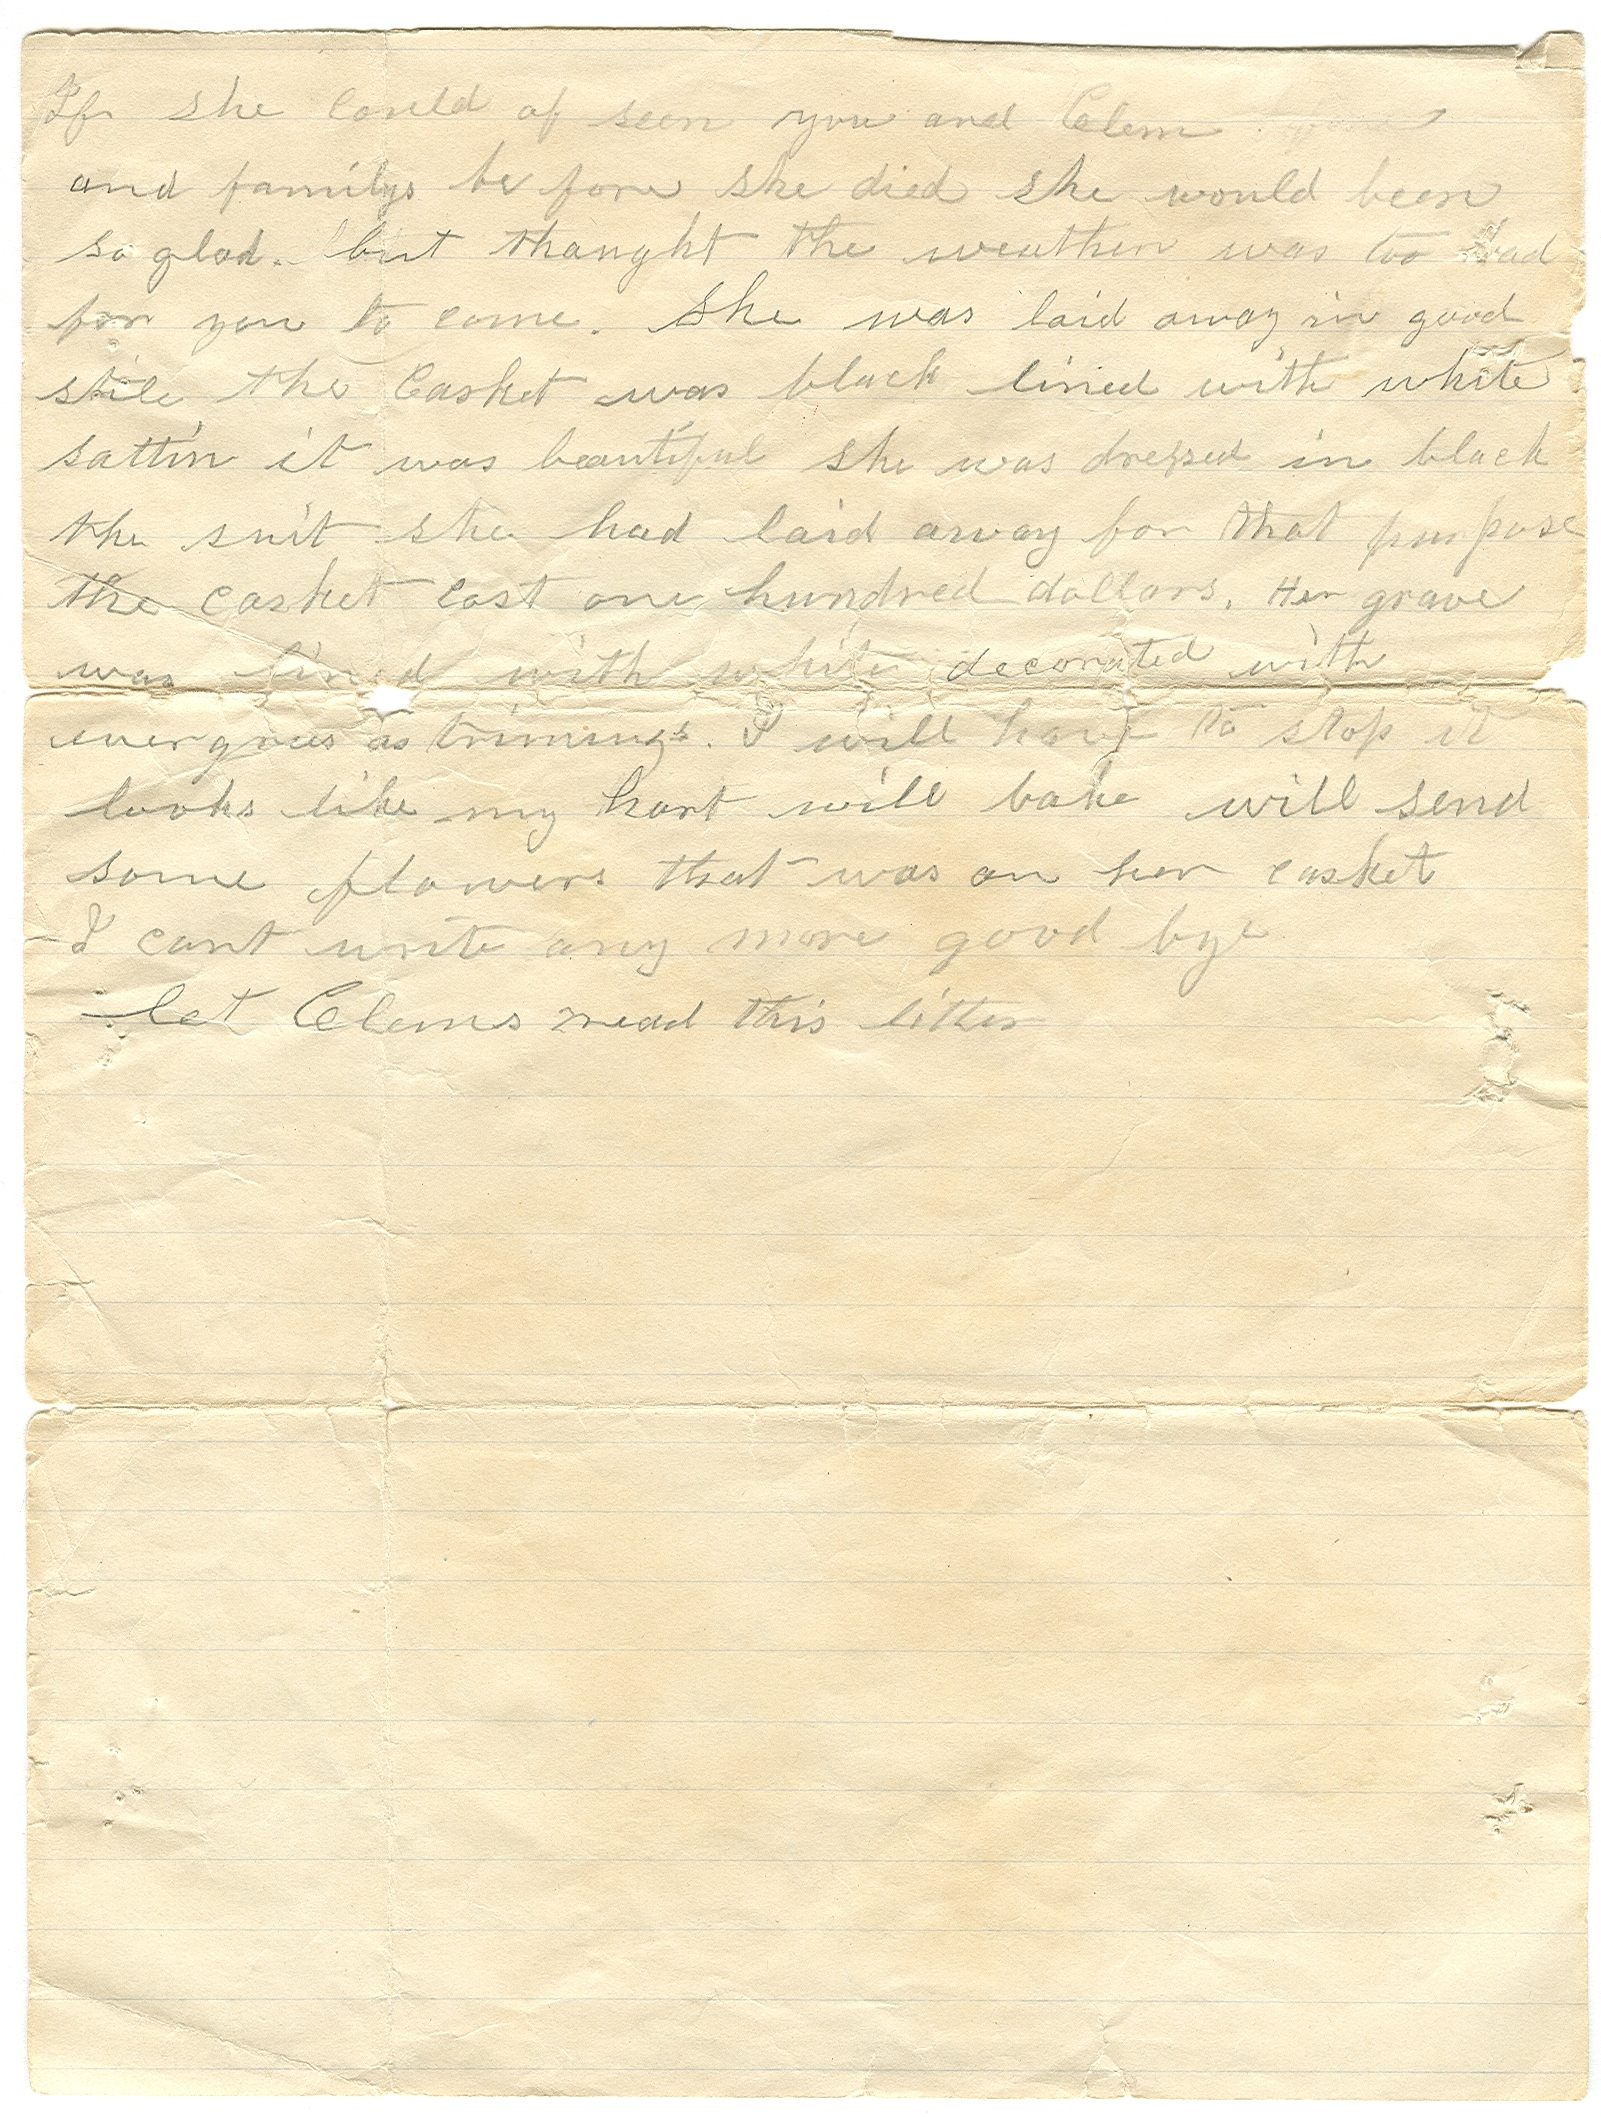 If she Could of seen you and Clem
and familys be fore she died she would been
so glad. but thanght the weather was too bad
for you to come. She was laid away in good
stile the Casket was black lined with white
sattin it was beautiful she was dressed in black
the suit she had laid away for that purpose
the casket cost one hundred dollars. Her grave
was lined with white decorated with
evergrees as trimings. I will have to stop it
looks like my hart will bake will send
some flowers that was on her casket
I cant write any more good bye
let Clems read this litter